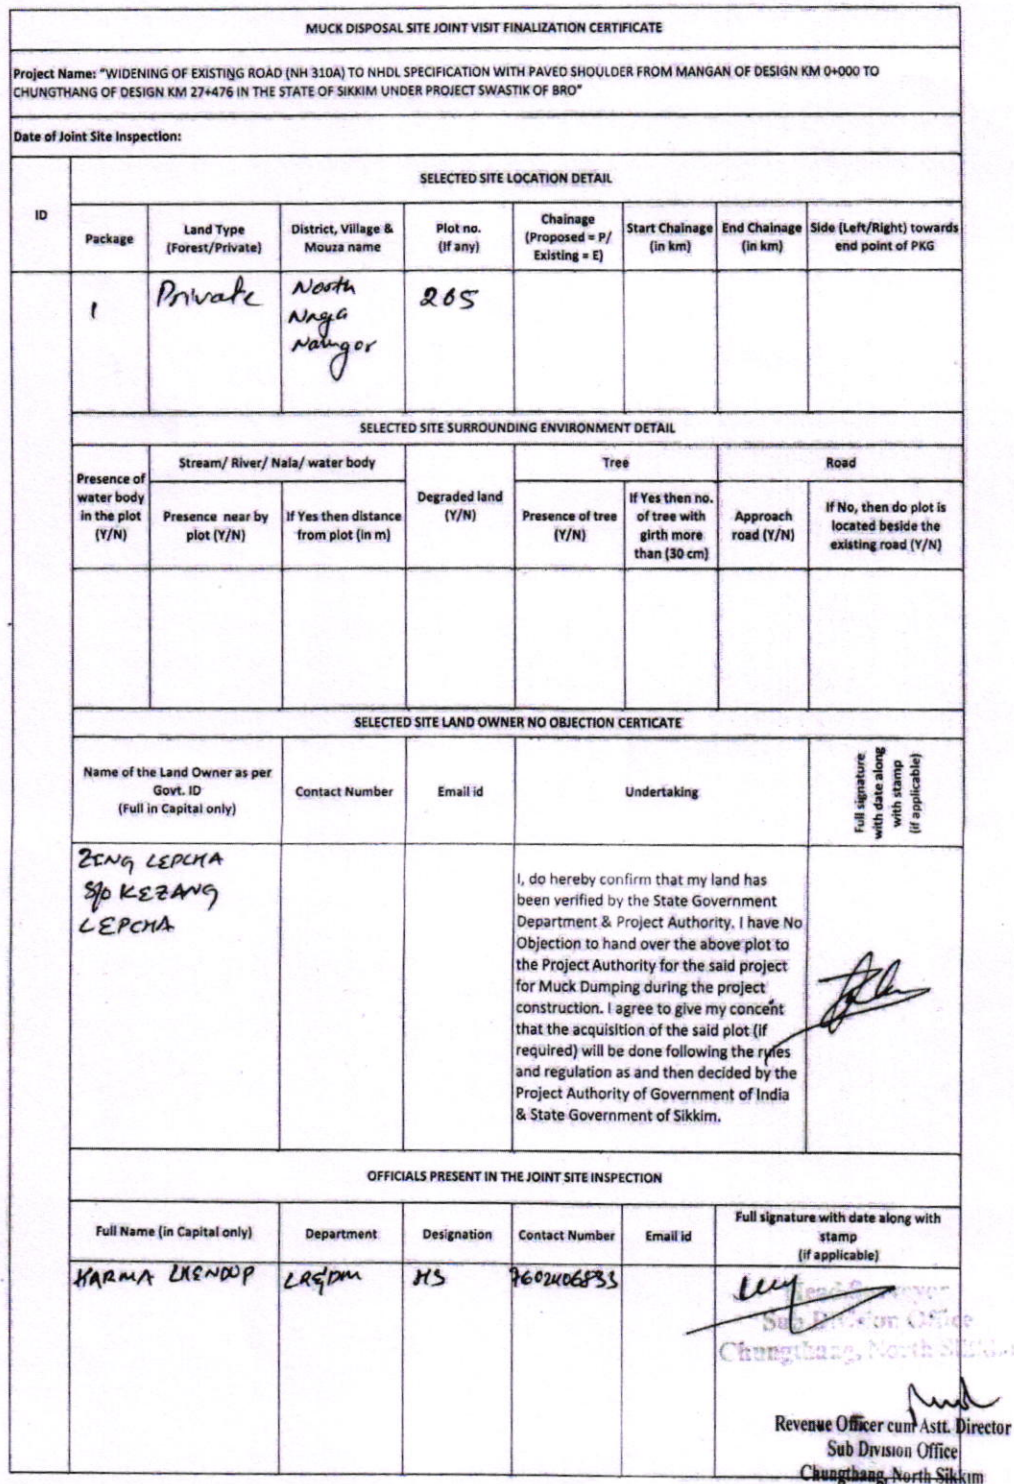 MUCK DISPOSAL SITE JOINT VISIT FINALIZATION CERTIFICATE
Project Name: "WIDENING OF EXISTING ROAD (NH 310A) TO NHDL SPECIFICATION WITH PAVED SHOULDER FROM MANGAN OF DESIGN KM 0+000 TO
CHUNGTHANG OF DESIGN KM 27+476 IN THE STATE OF SIKKIM UNDER PROJECT SWASTIK OF BRO"
Date of Joint Site Inspection:
ID
SELECTED SITE LOCATION DETAIL
Package
Land Type
(Forest/Private)
District, Village &
Mouza name
Plot no.
(If any)
Chainage
(Proposed = P/
Existing = E)
Start Chainage
(in km)
End Chainage
(in km)
Side (Left/Right) towards
end point of PKG
1
Private
North
Naga
Namgor
265
SELECTED SITE SURROUNDING ENVIRONMENT DETAIL
Presence of
water body
in the plot
(Y/N)
Stream/ River/ Nala/ water body
Presence near by
plot (Y/N)
If Yes then distance
from plot (in m)
Degraded land
(Y/N)
Tree
Presence of tree
(Y/N)
If Yes then no.
of tree with
girth more
than (30 cm)
Road
Approach
road (Y/N)
If No, then do plot is
located beside the
existing road (Y/N)
SELECTED SITE LAND OWNER NO OBJECTION CERTICATE
Name of the Land Owner as per
Govt. ID
(Full in Capital only)
Contact Number
Email id
Undertaking
Full signature
with date along
with stamp
(if applicable)
ZING LEPCHA
S/O KEZANG
LEPCHA
I, do hereby confirm that my land has
been verified by the State Government
Department & Project Authority. I have No
Objection to hand over the above plot to
the Project Authority for the said project
for Muck Dumping during the project
construction. I agree to give my concent
that the acquisition of the said plot (if
required) will be done following the rules
and regulation as and then decided by the
Project Authority of Government of India
& State Government of Sikkim.
OFFICIALS PRESENT IN THE JOINT SITE INSPECTION
Full Name (in Capital only)
Department
Designation
Contact Number
Email id
Full signature with date along with
stamp
(if applicable)
KARMA LHENDUP
LR&DM
HS
Head Surveyor
Sub Division Office
Chungthang, North Sikkim
Revenue Officer cum Astt. Director
Sub Division Office
Chungthang, North Sikkim